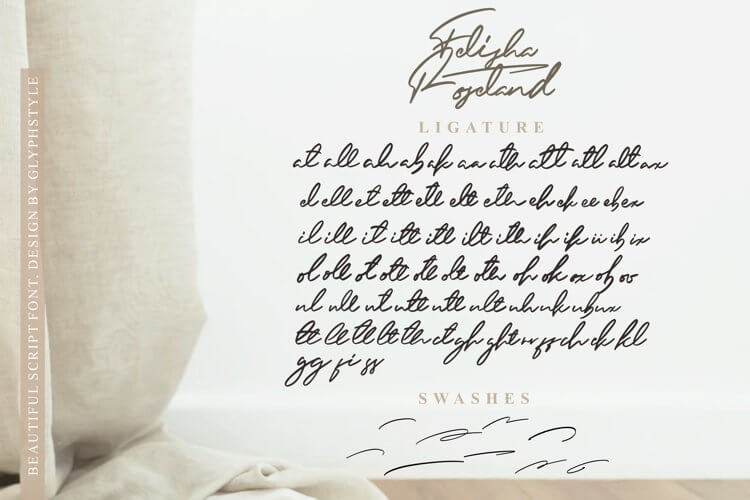 Felisha
Roseland
LIGATURE
at all ah ab ak aa ath att atl alt ax
el ell et ett etl elt eth eh ek ee eb ex
il ill it itt itl ilt ith ih ik ii ib ix
ol oll ot ott otl olt oth oh ok ox ob
ul ull ut utt utl ult uh uk ub ux
tt ll tll lt th ct gh ght rr ff ch ck kl
gg fi ss
SWASHES
BEAUTIFUL SCRIPT FONT. DESIGN BY GLYPHSTYLE